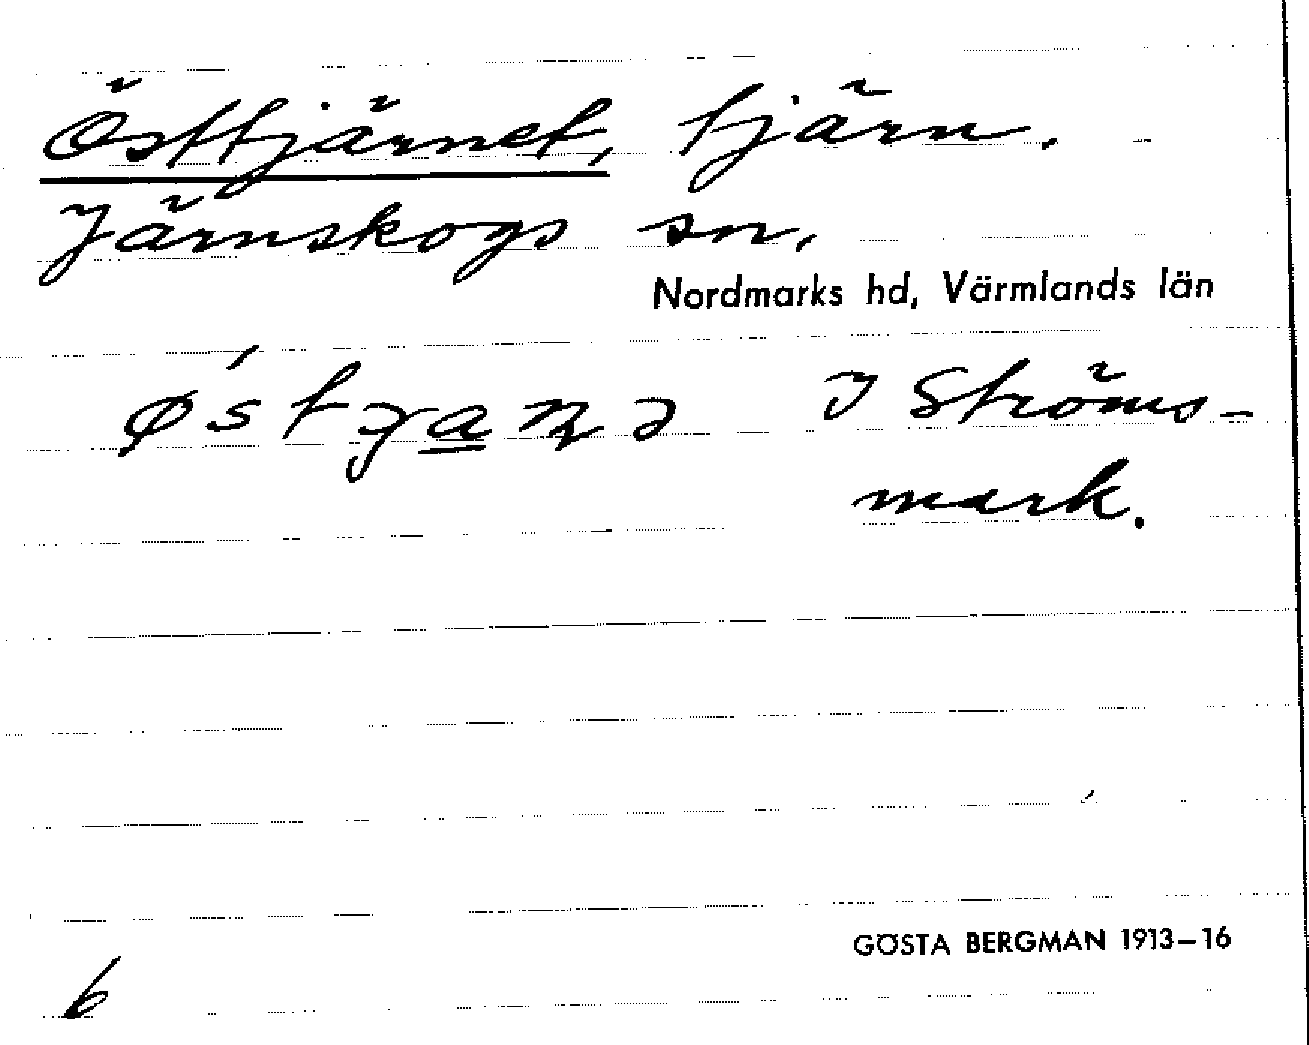 Östtjärnet, tjärn.
Järnskogs sn.
Nordmarks hd, Värmlands län
I Ströms-
mark.
GÖSTA BERGMAN 1913–16
6